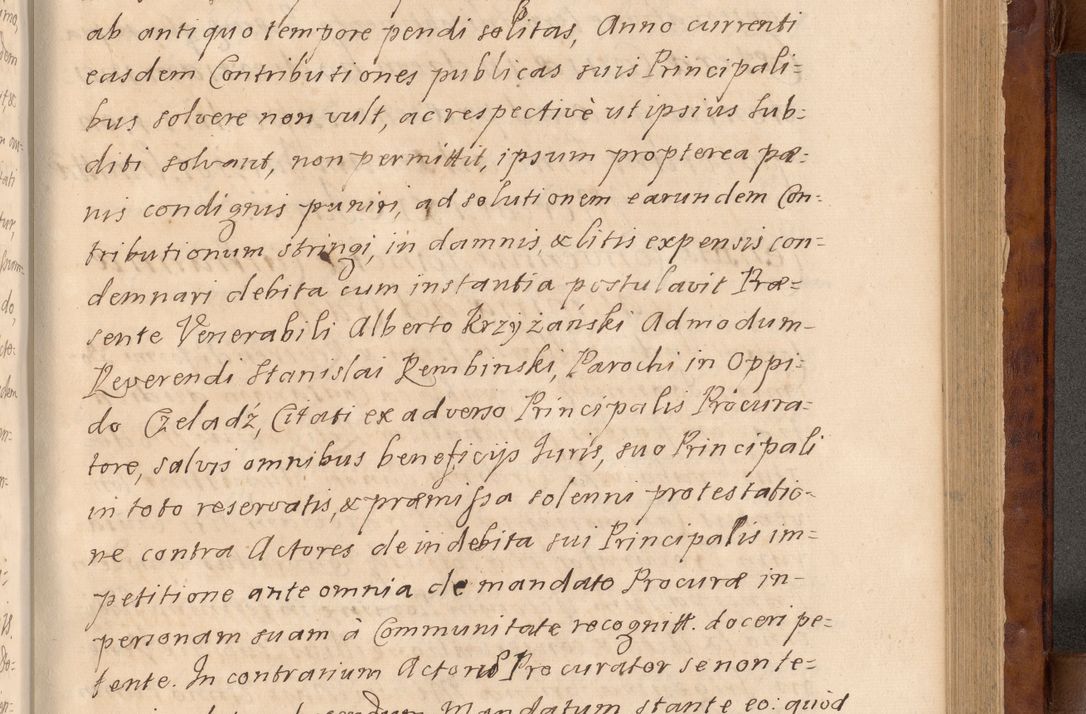 ab antiquo tempore pendi solitas, Anno currenti
easdem Contributiones publicas suis Principali=
bus solvere non vult, ac respectivè ut ipsius sub=
diti solvant, non permittit, ipsum propterea pæ=
nis condignis puniri, ad solutionem earundem Con=
tributionum stringi, in damnis & litis expensis con=
demnari debita cum instantia postulavit Præ=
sente Venerabili Alberto Krzyżański Admodum=
Reverendi Stanislai Rembinski, Parochi in Oppi=
do Czeladź, Citati ex adverso Principalis Procura=
tore, salvis omnibus beneficijs Iuris, suo Principali
in toto reservatis, & præmissa solenni protestatio=
ne contra Actores de indebita sui Principalis im=
petitione ante omnia de mandato Procuræ in=
personam suam à Communitate recognitt. doceri pe=
tente. In contrarium Actoris Procurator se non te=
Mandatum stante eo: quòd